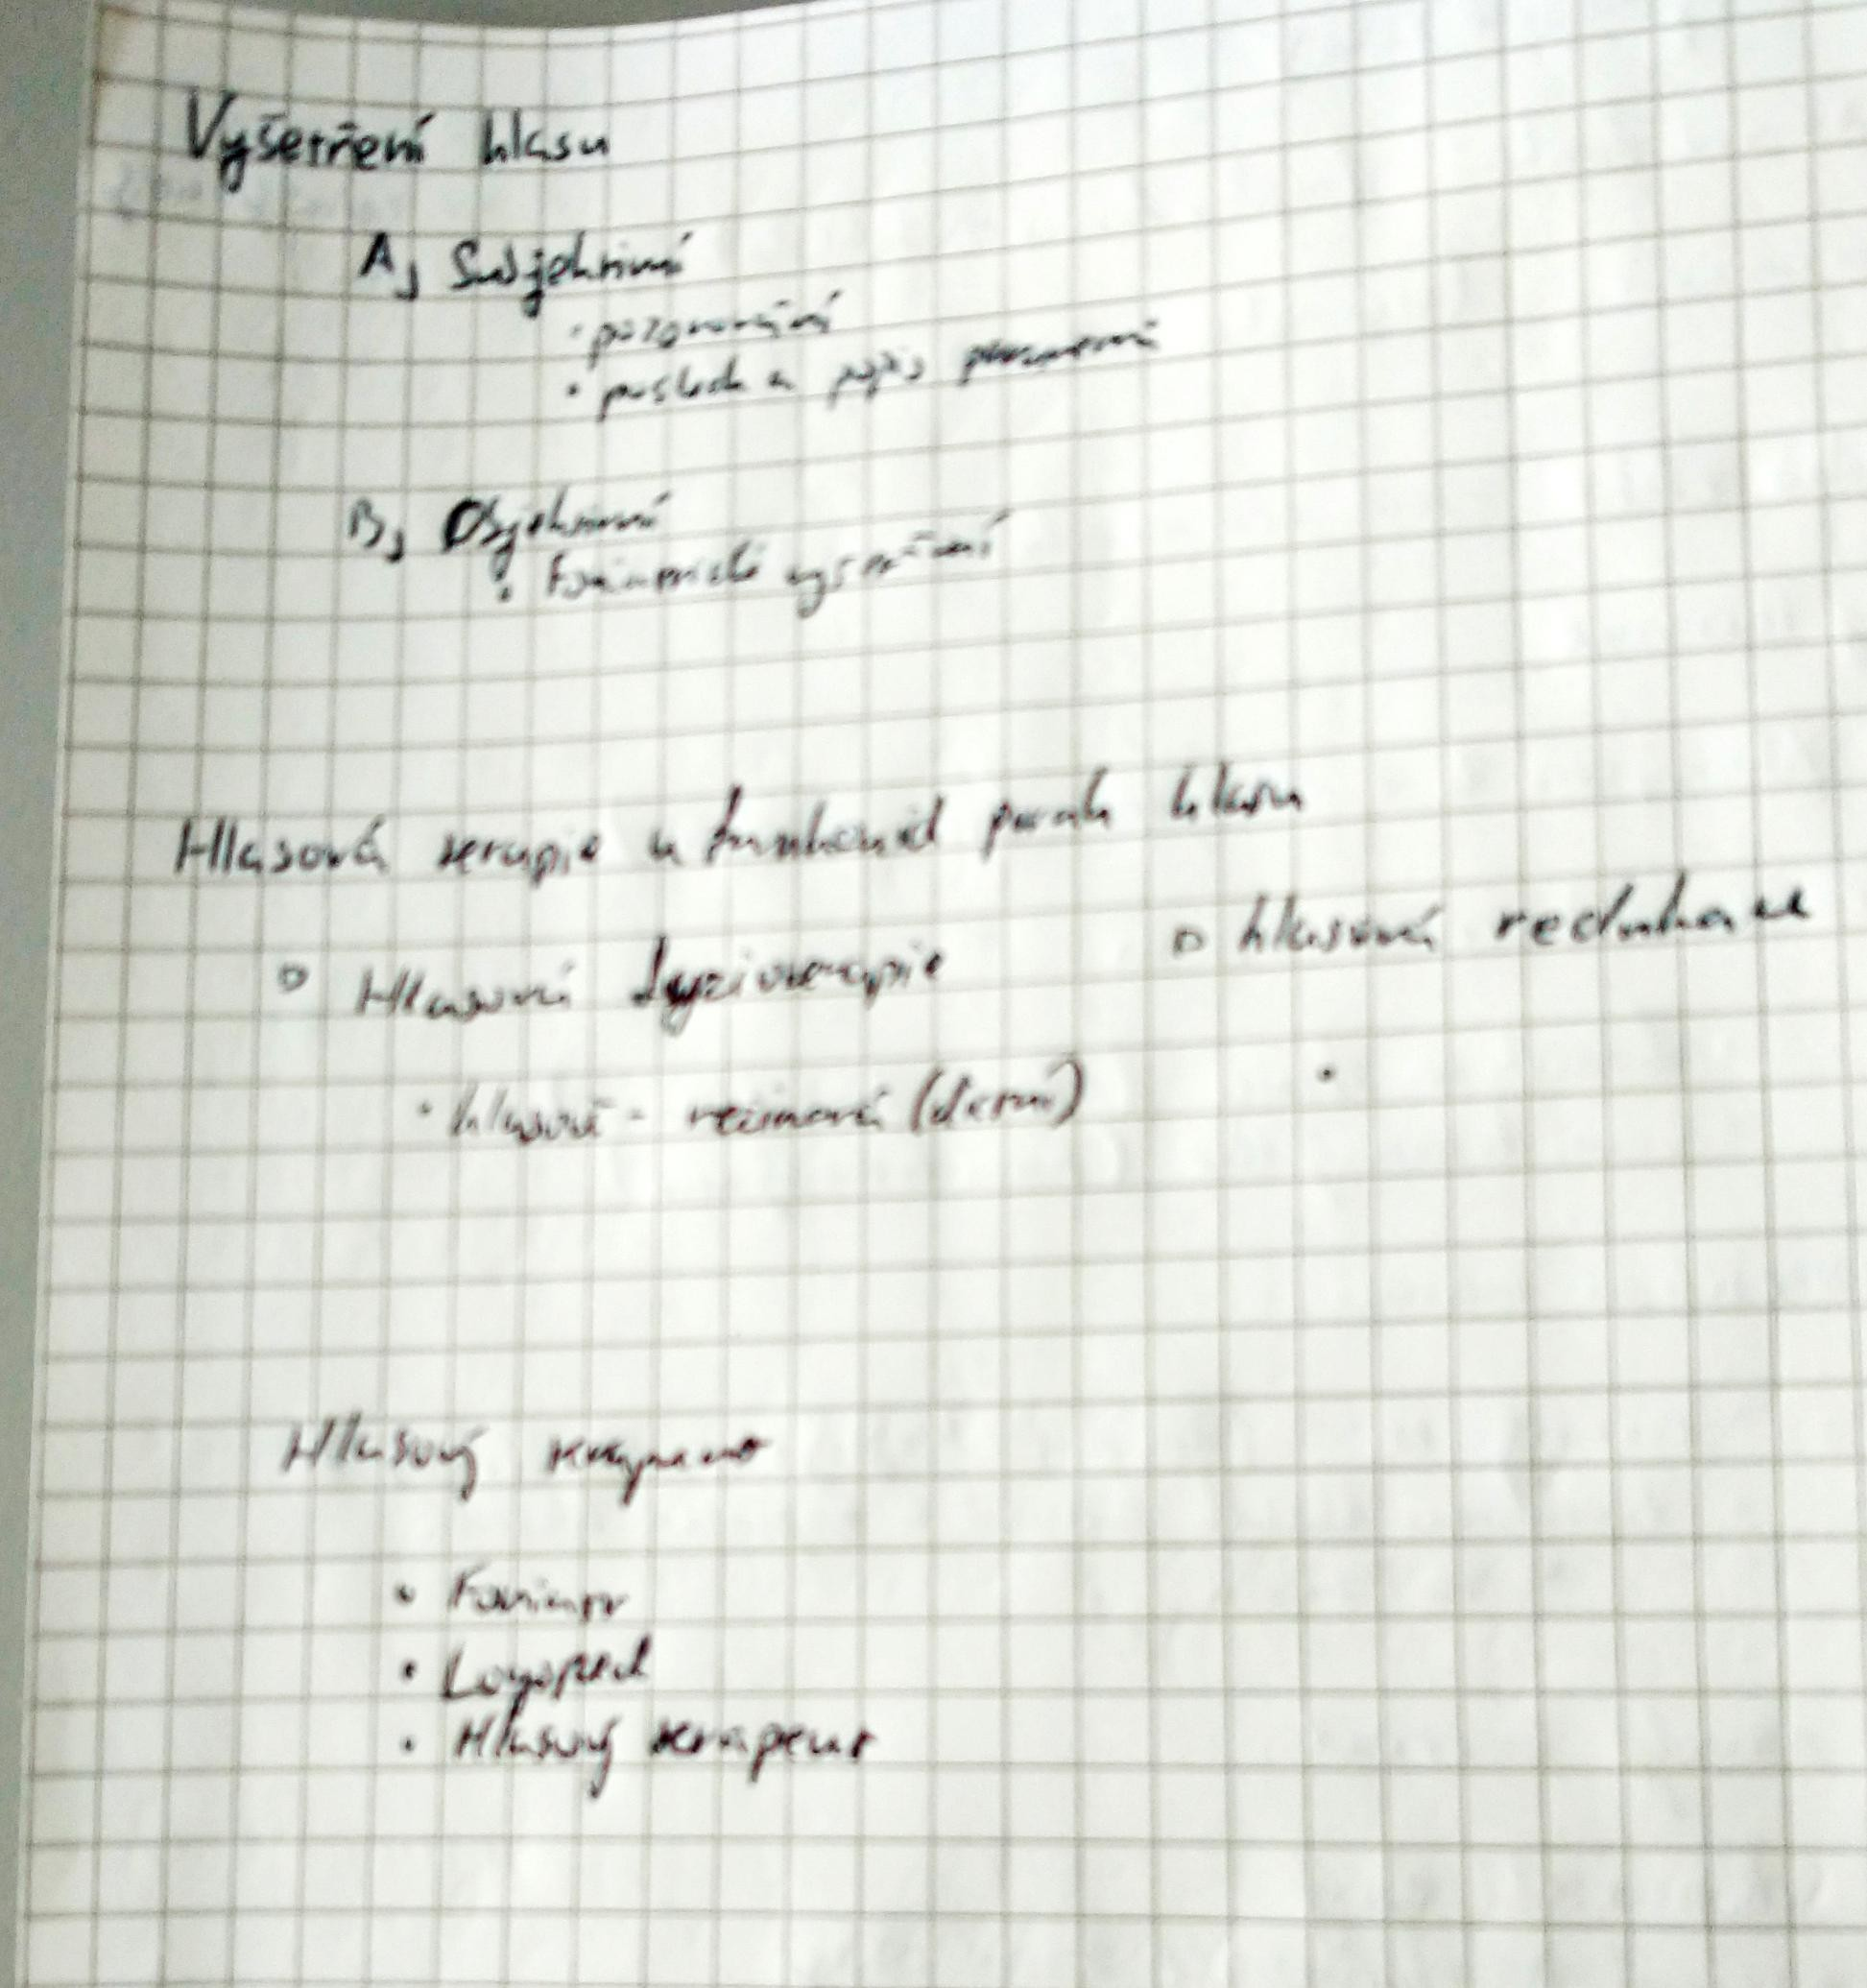 Vyšetření hlasu
A, Subjektivní
· pozorování
· poslech a popis
B, Objektivní
· Foniatrické vyšetření
Hlasová terapie a funkční hlasu
Hlasová fyzioterapie
hlasová redukace
· hlasově - režimová
Hlasový
· Foniatr
· Logoped
· Hlasový terapeut